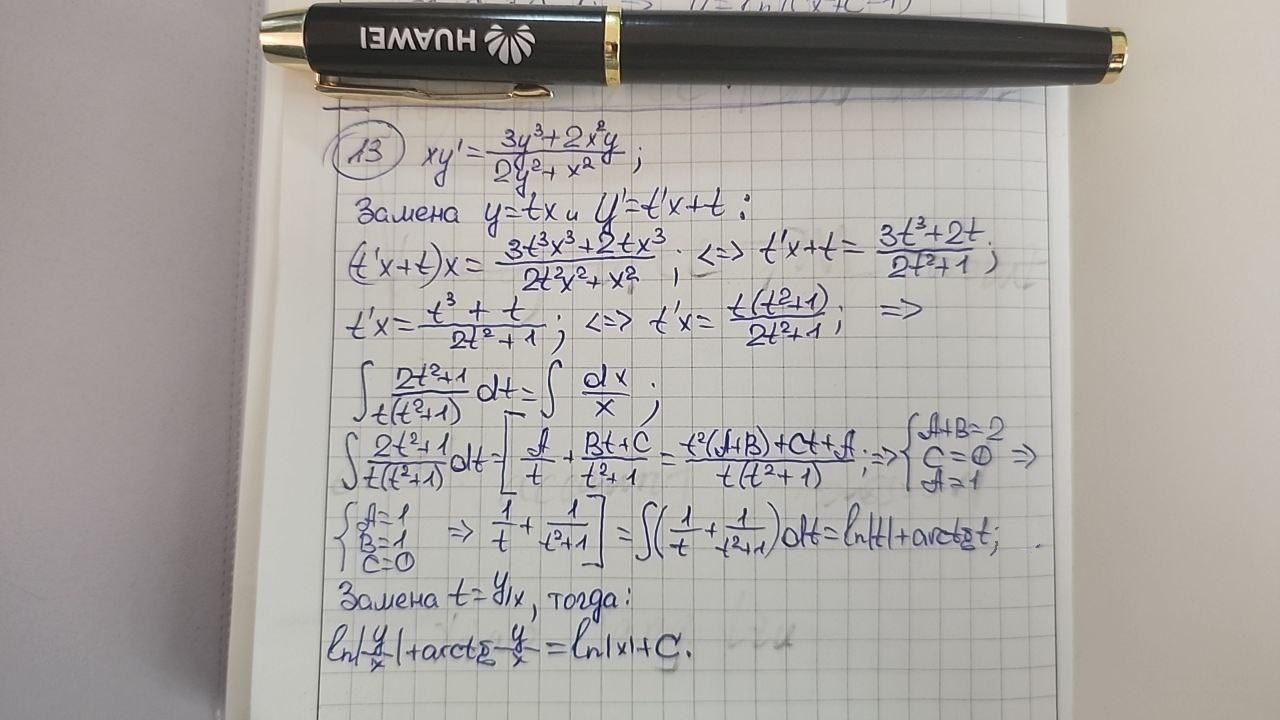 HUAWEI
13 xy' = \frac{3y^3+2x^2y}{2y^2+x^2};
Замена y=tx и y'=t'x+t:
(t'x+t)x = \frac{3t^3x^3+2tx^3}{2t^2x^2+x^2}; <=> t'x+t = \frac{3t^3+2t}{2t^2+1};
t'x = \frac{t^3+t}{2t^2+1}; <=> t'x = \frac{t(t^2+1)}{2t^2+1}; =>
∫\frac{2t^2+1}{t(t^2+1)}dt = ∫\frac{dx}{x};
∫\frac{2t^2+1}{t(t^2+1)}dt = [\frac{A}{t} + \frac{Bt+C}{t^2+1} = \frac{t^2(A+B)+Ct+A}{t(t^2+1)}; => {A+B=2 C=0 A=1 =>
{A=1 B=1 C=0 => \frac{1}{t} + \frac{1}{t^2+1}] = ∫(\frac{1}{t} + \frac{1}{t^2+1})dt = ln|t| + arctg t;
Замена t=y/x, тогда:
ln|\frac{y}{x}| + arctg \frac{y}{x} = ln|x| + C.